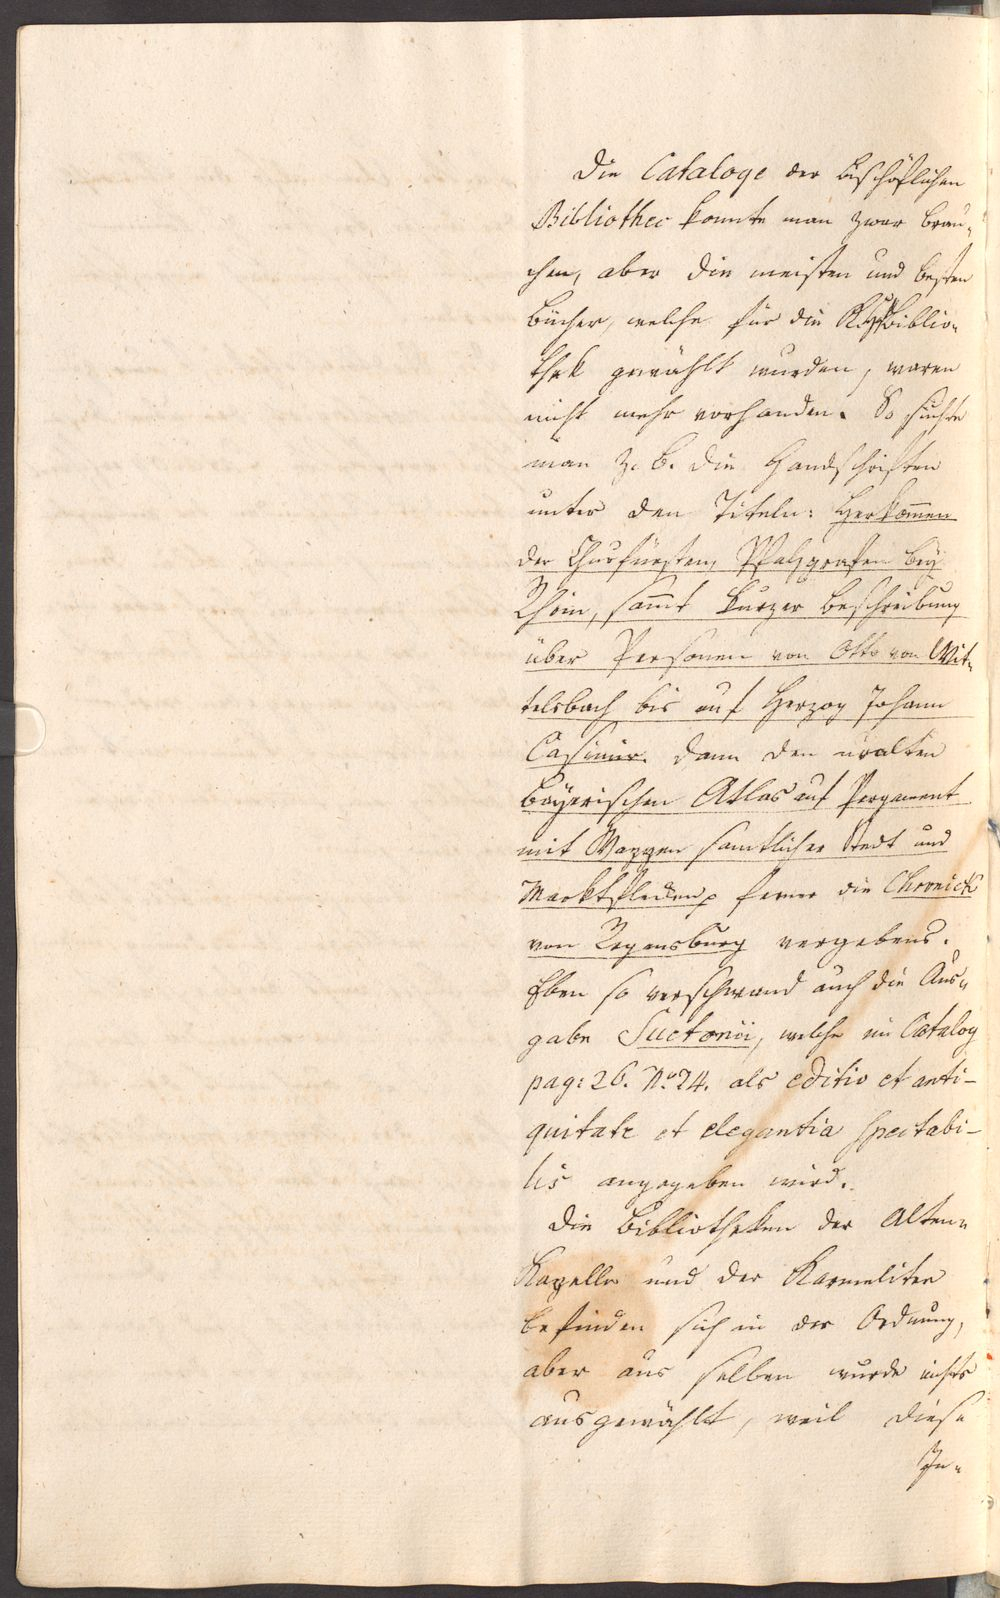 Die Cataloge der bischöflichen
Bibliothec konnte man zwar brau-
chen, aber die meisten und besten
Bücher, welche für die Biblio-
thek gewählt wurden, waren
nicht mehr vorhanden. So suchte
man z. B. die Handschriften
unter den Titeln: Herkom̄en
der Churfürsten, Pfalzgrafen bey
Rhein, sam̄t kurzer Beschreibung
über Personen von Otto von Wit-
telsbach bis auf Herzog Johann
Casimir. dann den uralten
bayerischen Atlas auf Pergament
mit Wappen samtlicher Stedt und
Marktflecken, ferner die Chronick
von Regensburg vergebens.
Eben so verschwand auch die Aus-
gabe Suetonii, welche im Catalog
pag: 26. No. 74. als editio et anti-
quitate et elegantia spectabi-
lis angegeben wird.
Die Bibliotheken der Alten-
Kapelle und der Karmeliten
befinden sich in der Ordnung,
aber aus selben wurde nichts
ausgewählt, weil diese
In-